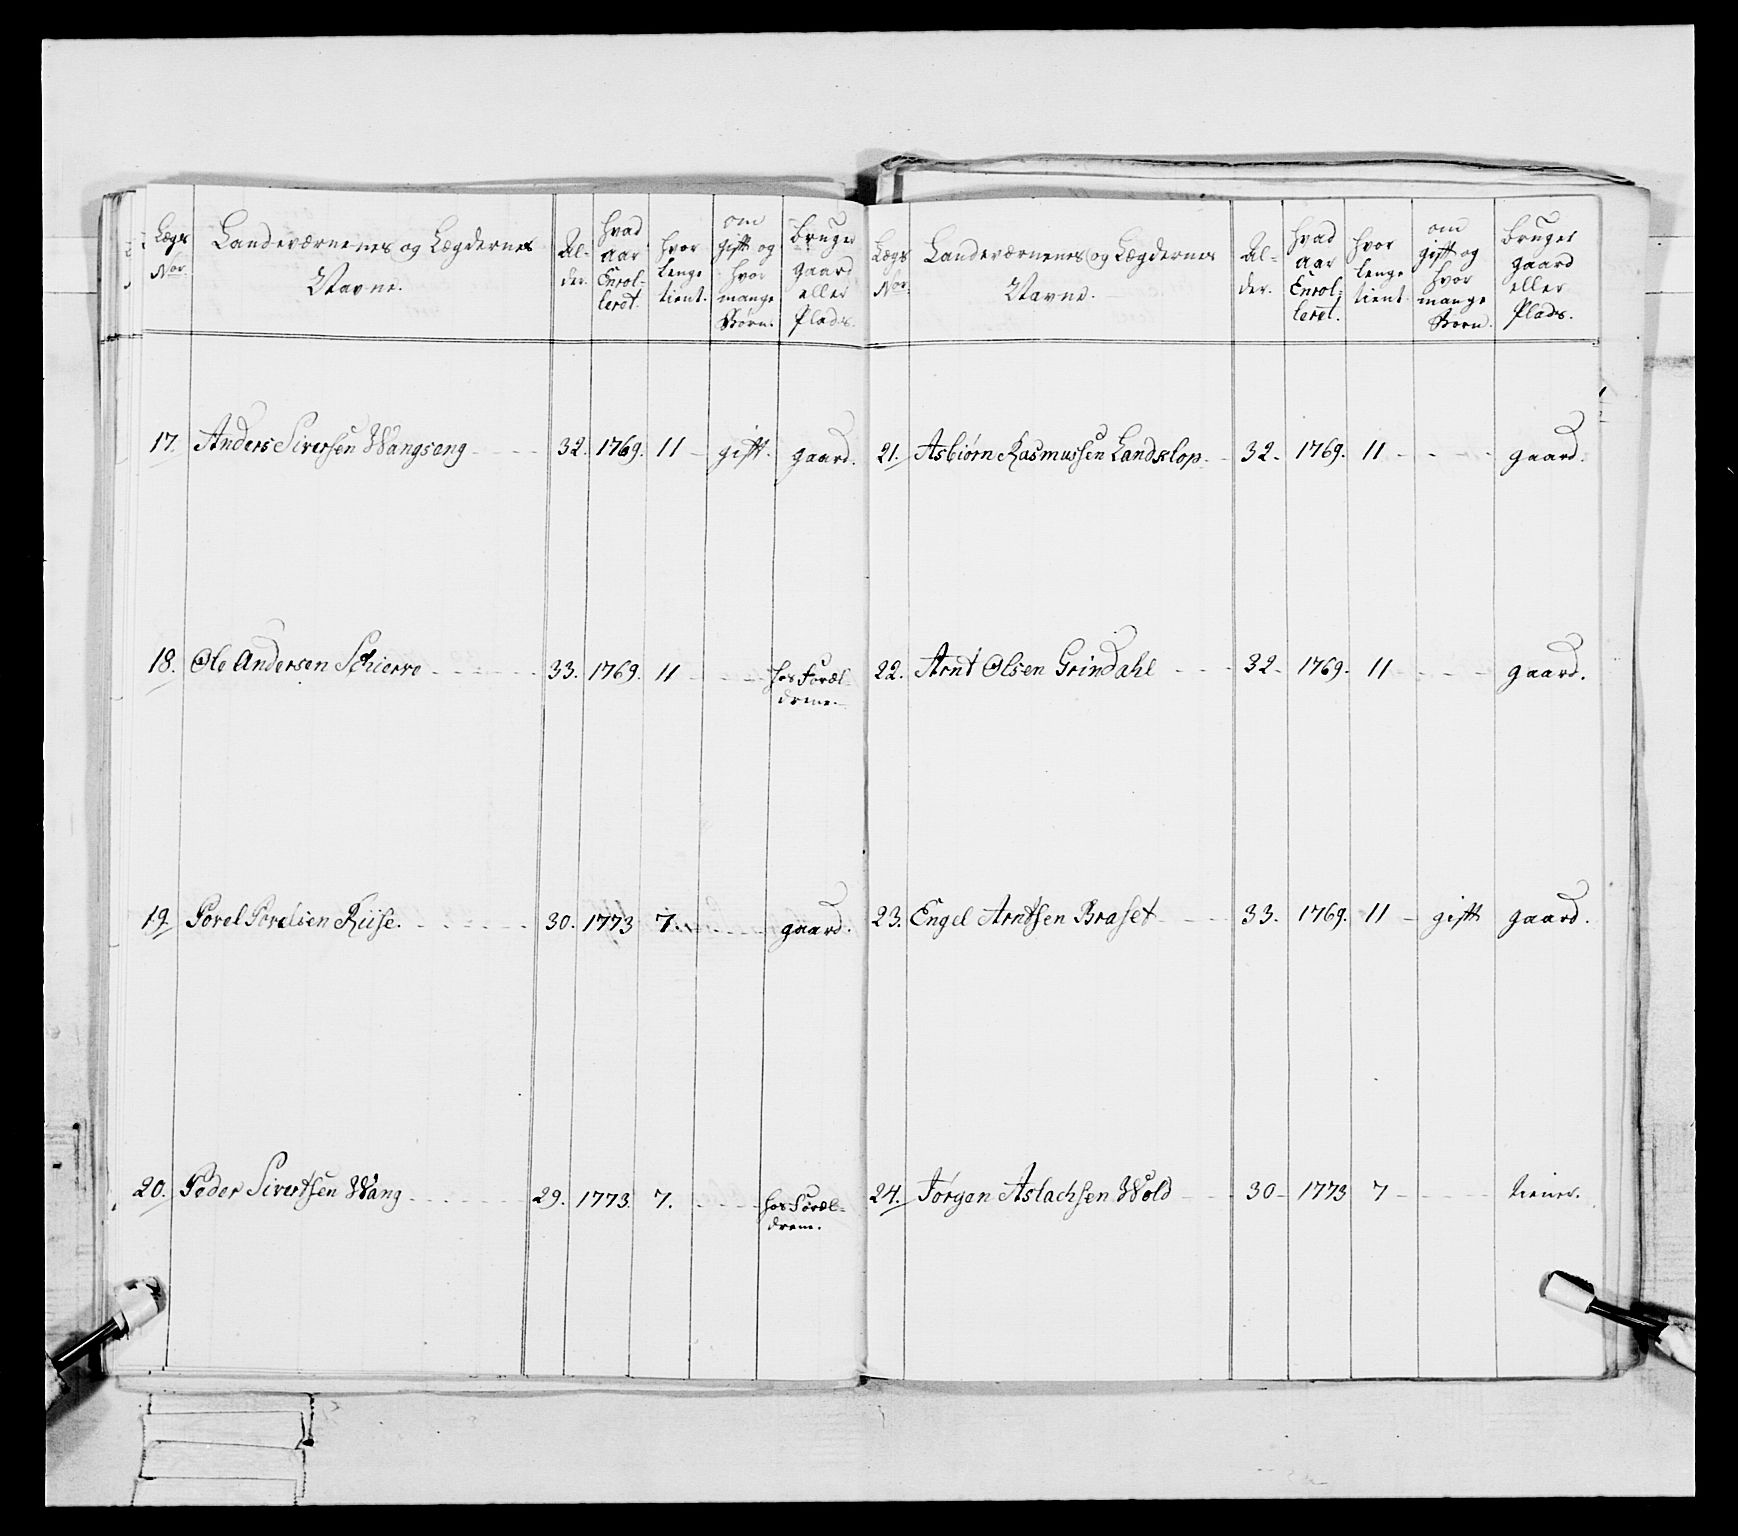 Lægs Nor.
Landeværnenes og Lægdernes Navne.
Al-der.
hvad aar Enrol-leret.
hvor lenge tient.
om gift og hvor mange Børn.
bruger gaard eller Plads.
17. Anders Siversen Wangseng 32. 1769. 11 gift. gaard.
18. Ole Andersen Schierve 33. 1769. 11 hos Foræl-
drene.
19. Povel Povelsen Riise. 30. 1773 7. gaard.
20. Peder Sivertsen Wang 29. 1773. 7. hos Foræl-
drene.
Lægs Nor.
Landeværnenes og Lægdernes Navne.
Al-der.
hvad aar Enrol-leret.
hvor lenge tient.
om gift og hvor mange Børn.
bruger gaard eller Plads.
21. Asbiørn Rasmussen Landslop 32. 1769. 11 gaard.
22. Arnt Olsen Grindahl 32. 1769. 11 gaard.
23. Engel Arntsen Braset 33. 1769. 11 gift gaard.
24. Jørgen Aslachsen Wold 30 1773 7 tiener.